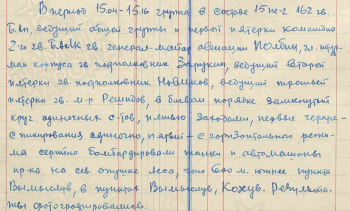 В период 15.04-15.16 группа в составе 15 пе-2 162 гв.
бап, ведущий общей группы и первой пятерки командир
2-го гв. БАК гв. генерал-майор авиации Полбин, гл. штур-
ман корпуса гв. подполковник Зарукин, ведущий второй
пятерки гв. подполковник Новиков, ведущий третьей
пятерки гв. м-р Решидов, в боевом порядке замкнутый
круг одиночных с-тов, пятью заходами, первые четыре -
с пикирования одиночно, пятый - с горизонтального режи-
ма серийно бомбардировали танки и автомашины
пр-ка на св. опушке леса, что 600 м. южнее пункта
Вымыслув, в пунктах Вымыслув, Кохув. Результа-
ты фотографированием.